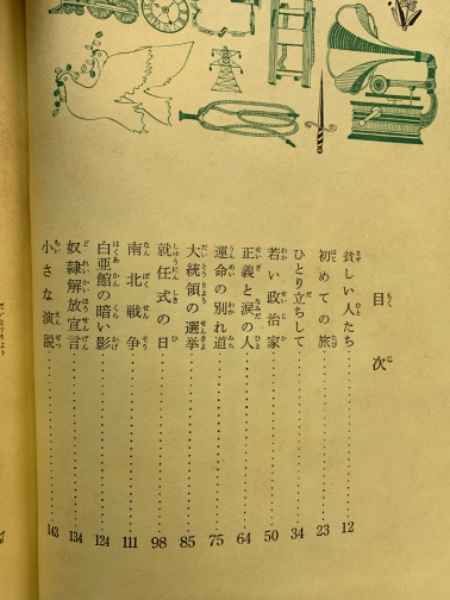 目次
貧しい人たち 12
初めての旅 23
ひとり立ちして 34
若い政治家 50
正義と涙の人 64
運命の別れ道 75
大統領の選挙 85
就任式の日 98
南北戦争 111
白亜館の暗い影 124
奴隷解放宣言 134
小さな演説 143